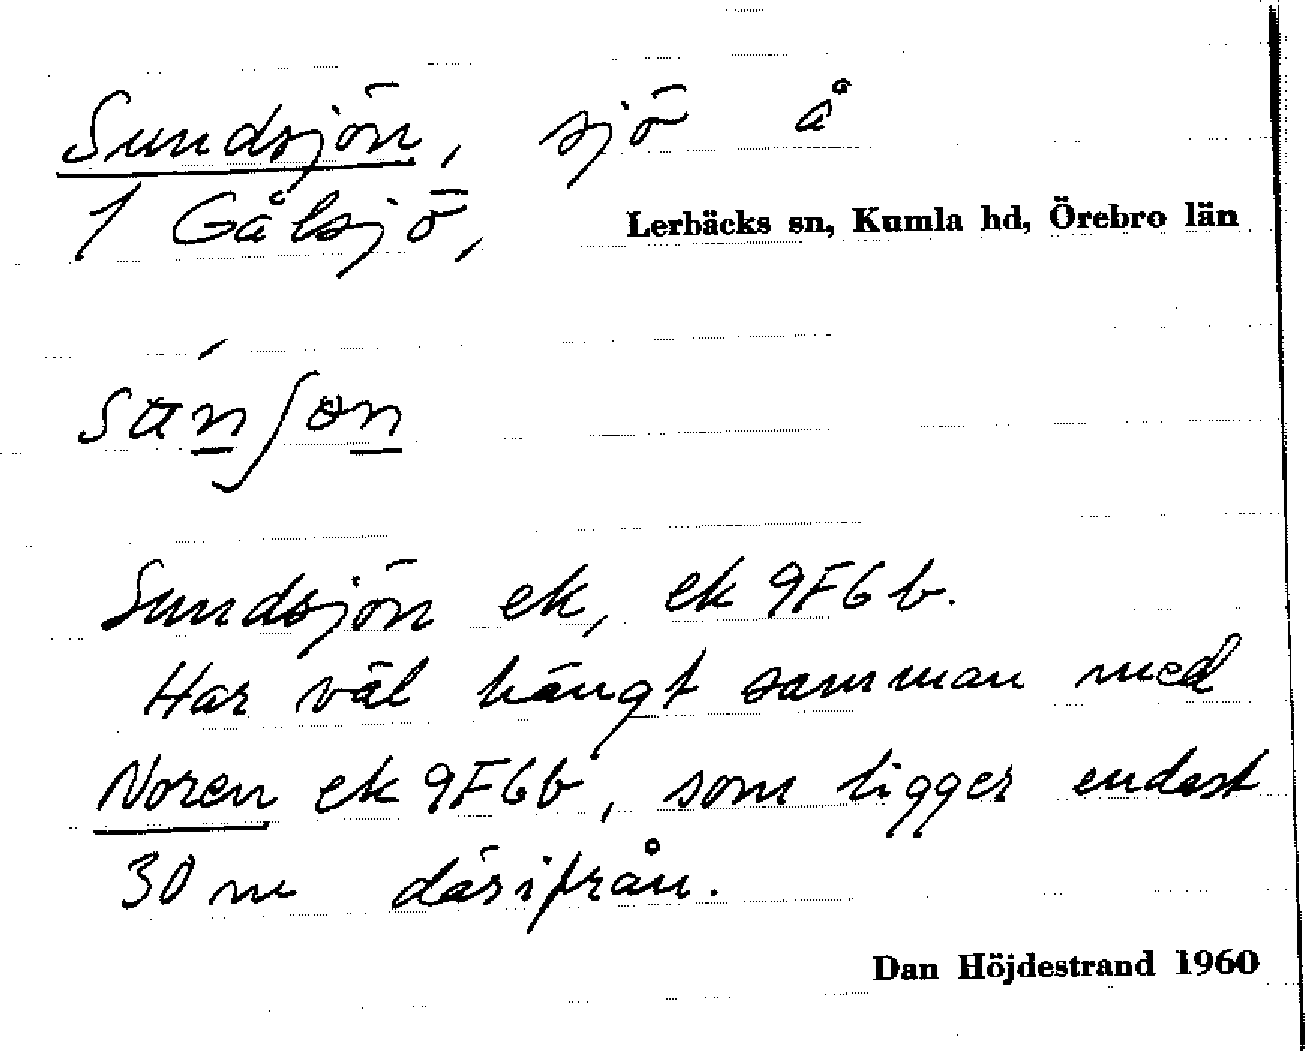 Sundsjön, sjö å
1 Gålsjö, Lerbäcks sn, Kumla hd, Örebro län
Sundsjön ek, ek 9F6b.
Har väl hängt samman med
Noren ek 9F6b, som ligger endast
30 m därifrån.
Dan Höjdestrand 1960